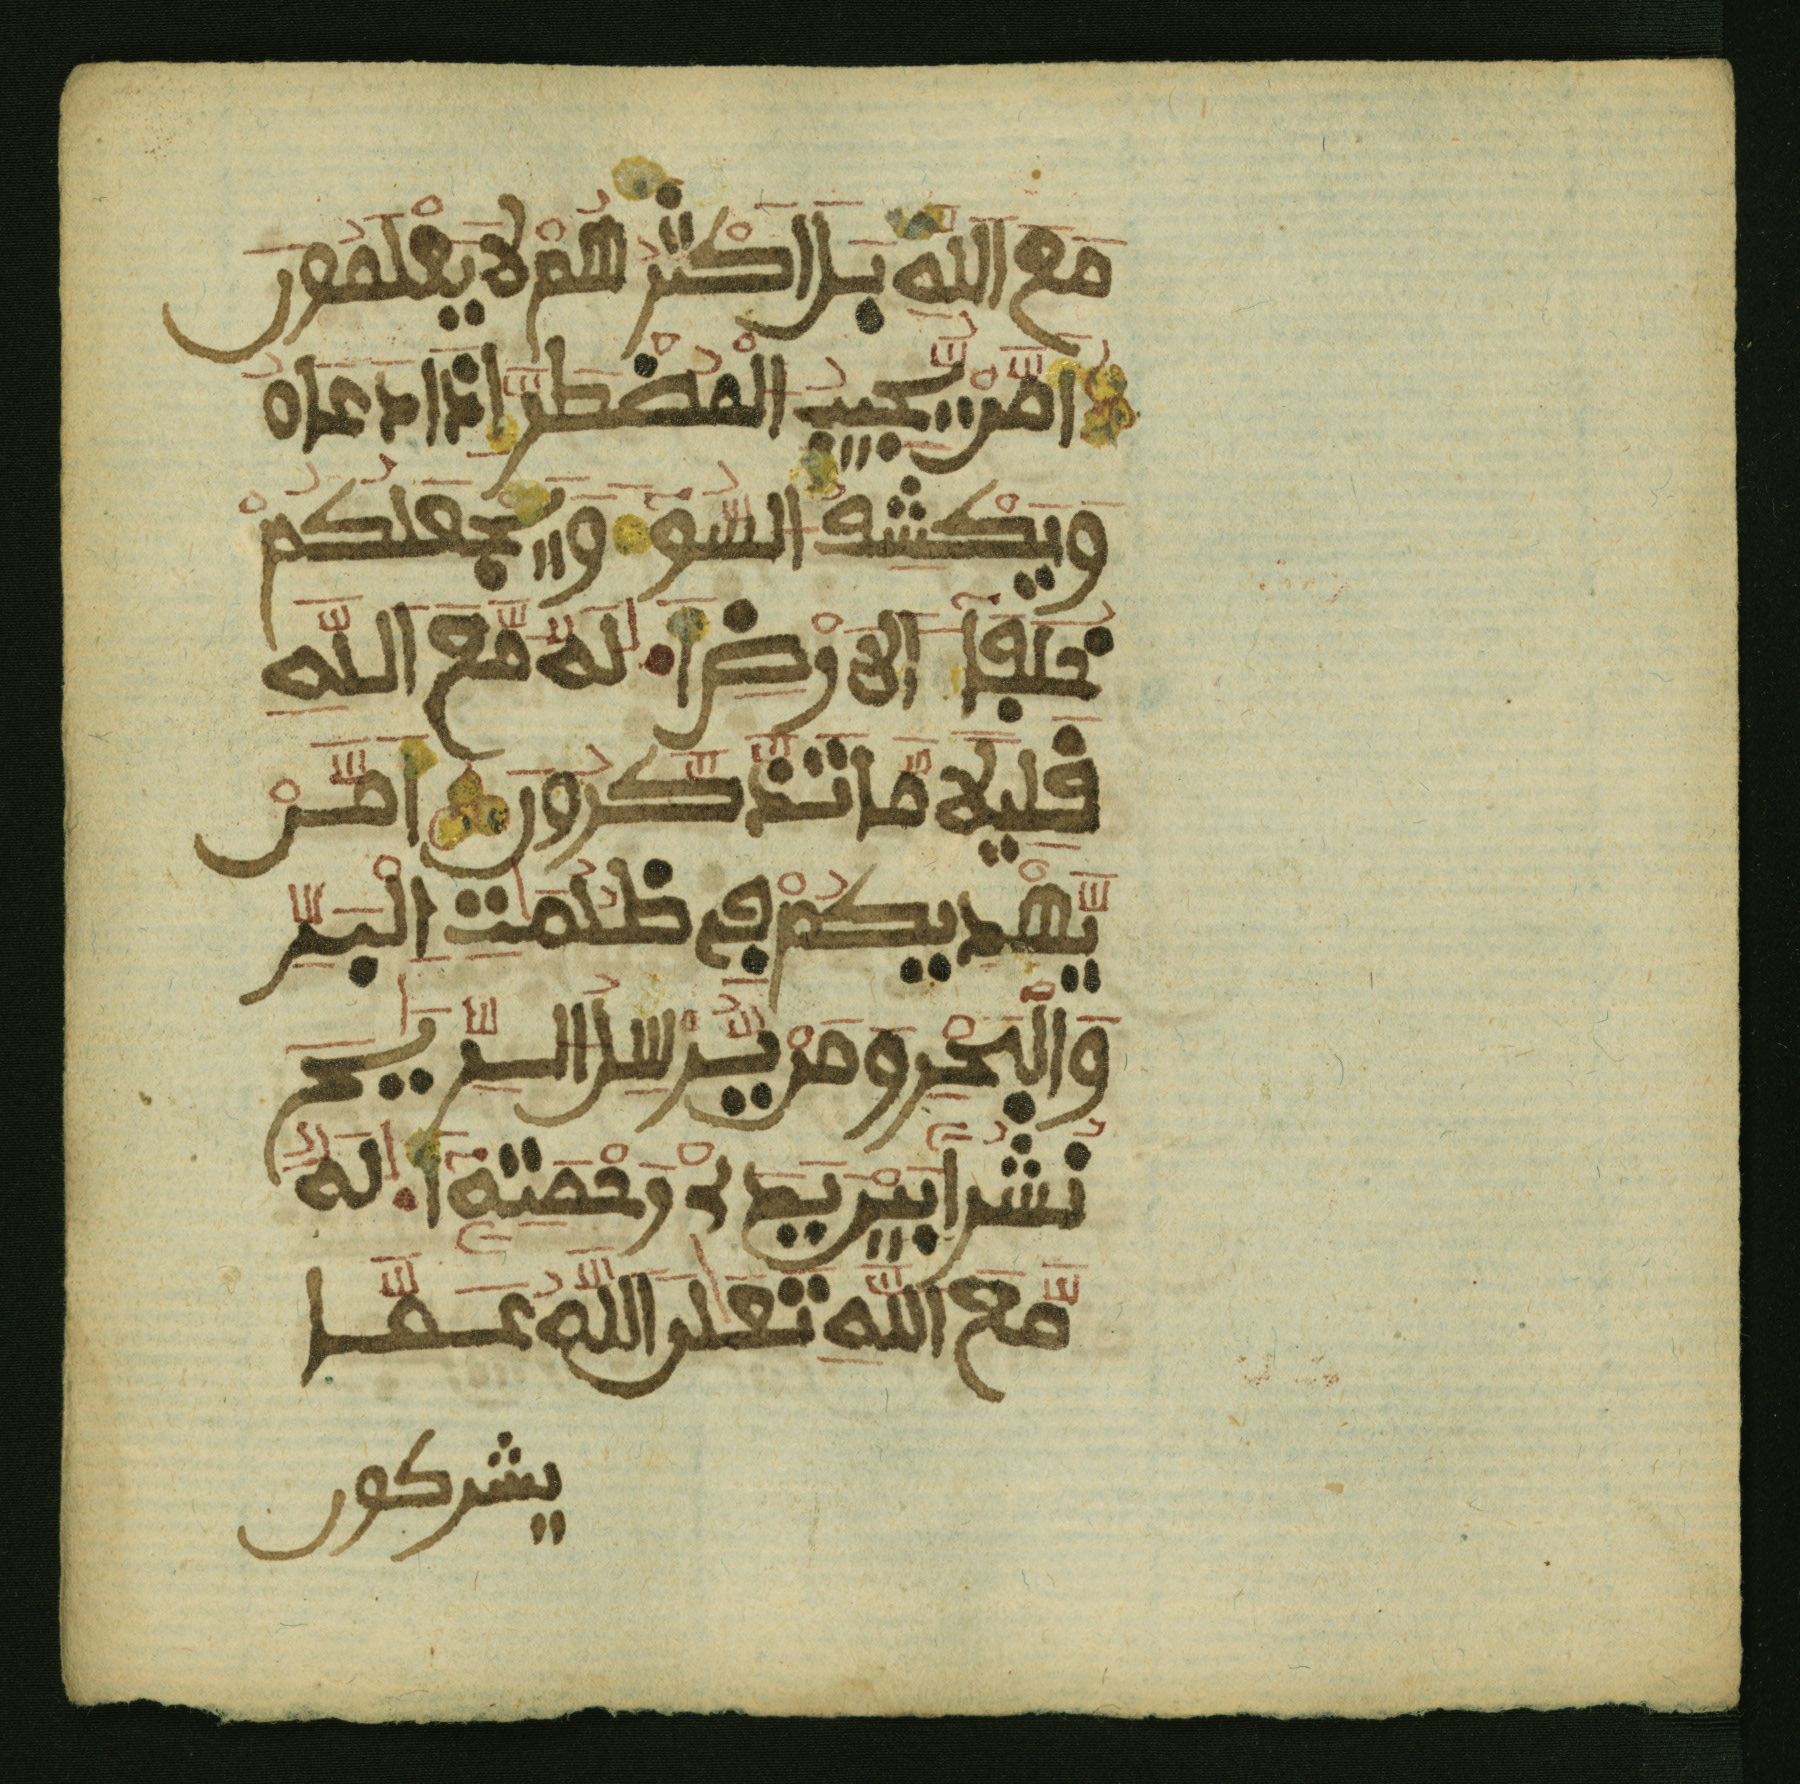 مَعَ اَللَّهِ بَلَ اَكْثَرُهُمْ لَا يَعْلَمُونَ
اَمَّنْ يُّجِيبُ الْمُضْطَرَّ إِذَا دَعَاهُ
وَيَكْشِفُ السُّوٓءَ وَيَجْعَلُكُمْ
خُلَفَآءَ الَارْضِ أَ.لَهٌ مَّعَ اَللَّهِ
قَلِيلًا مَّا تَذَّكَّرُونَ اَمَّنْ
يَّهْدِيكُمْ فِي ظُلُمَٰتِ الْبَرِّ
وَالْبَحْرِ وَمَنْ يُّرْسِلُ الرِّيَٰحَ
نُشُرًا بَيْنَ يَدَيْ رَحْمَتِهِ أَ.لَٰهٌ
مَّعَ اَللَّهِ تَعَٰلَى اَللَّهُ عَمَّا
يشركون